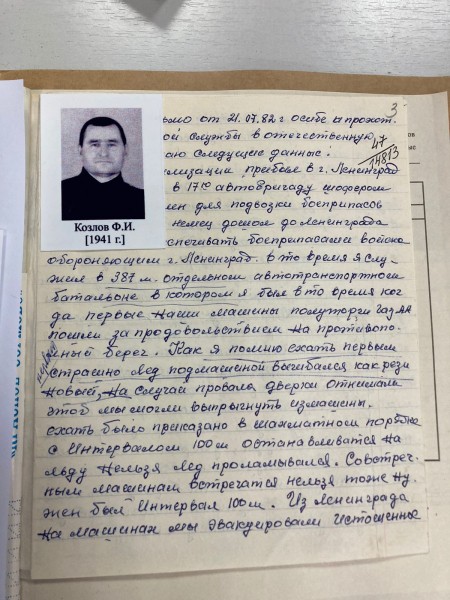 3
47
14813
ьмо от 21.07.82 г о себе и прохот.
ой службы в отечественную
аю следущие данные:
лизации прибыл в г. Ленинград
в 17ю автобригаду шофером
ен для подвозки боеприпасов
немец дошол до Ленинграда
спечивать боеприпасами войска
обороняющим г. Ленинград. в то время я слу-
жил в 387 м. отдельном автотранспортном
батальоне в котором я был в то время ког
да первые наши машины полуторги Газ АА
пошли за продовольствием на противопо.
ный берег. Как я помню ехать первым
страшно лед под машиной выгибался как рези
новый, на случай провала дверки отнимали
чтоб мы могли выпрыгнуть из машины.
ехать было приказано в шахматном порядке
с Интервалом 100м останавливатся на
льду нельзя лед проламывался. Совстреч.
ным машинам встрегатся нельзя тоже ну.
жен был Интервал 100м. Из Ленинграда
на машинах мы эвакуировали истощенные
Козлов Ф.И.
[1941 г.]